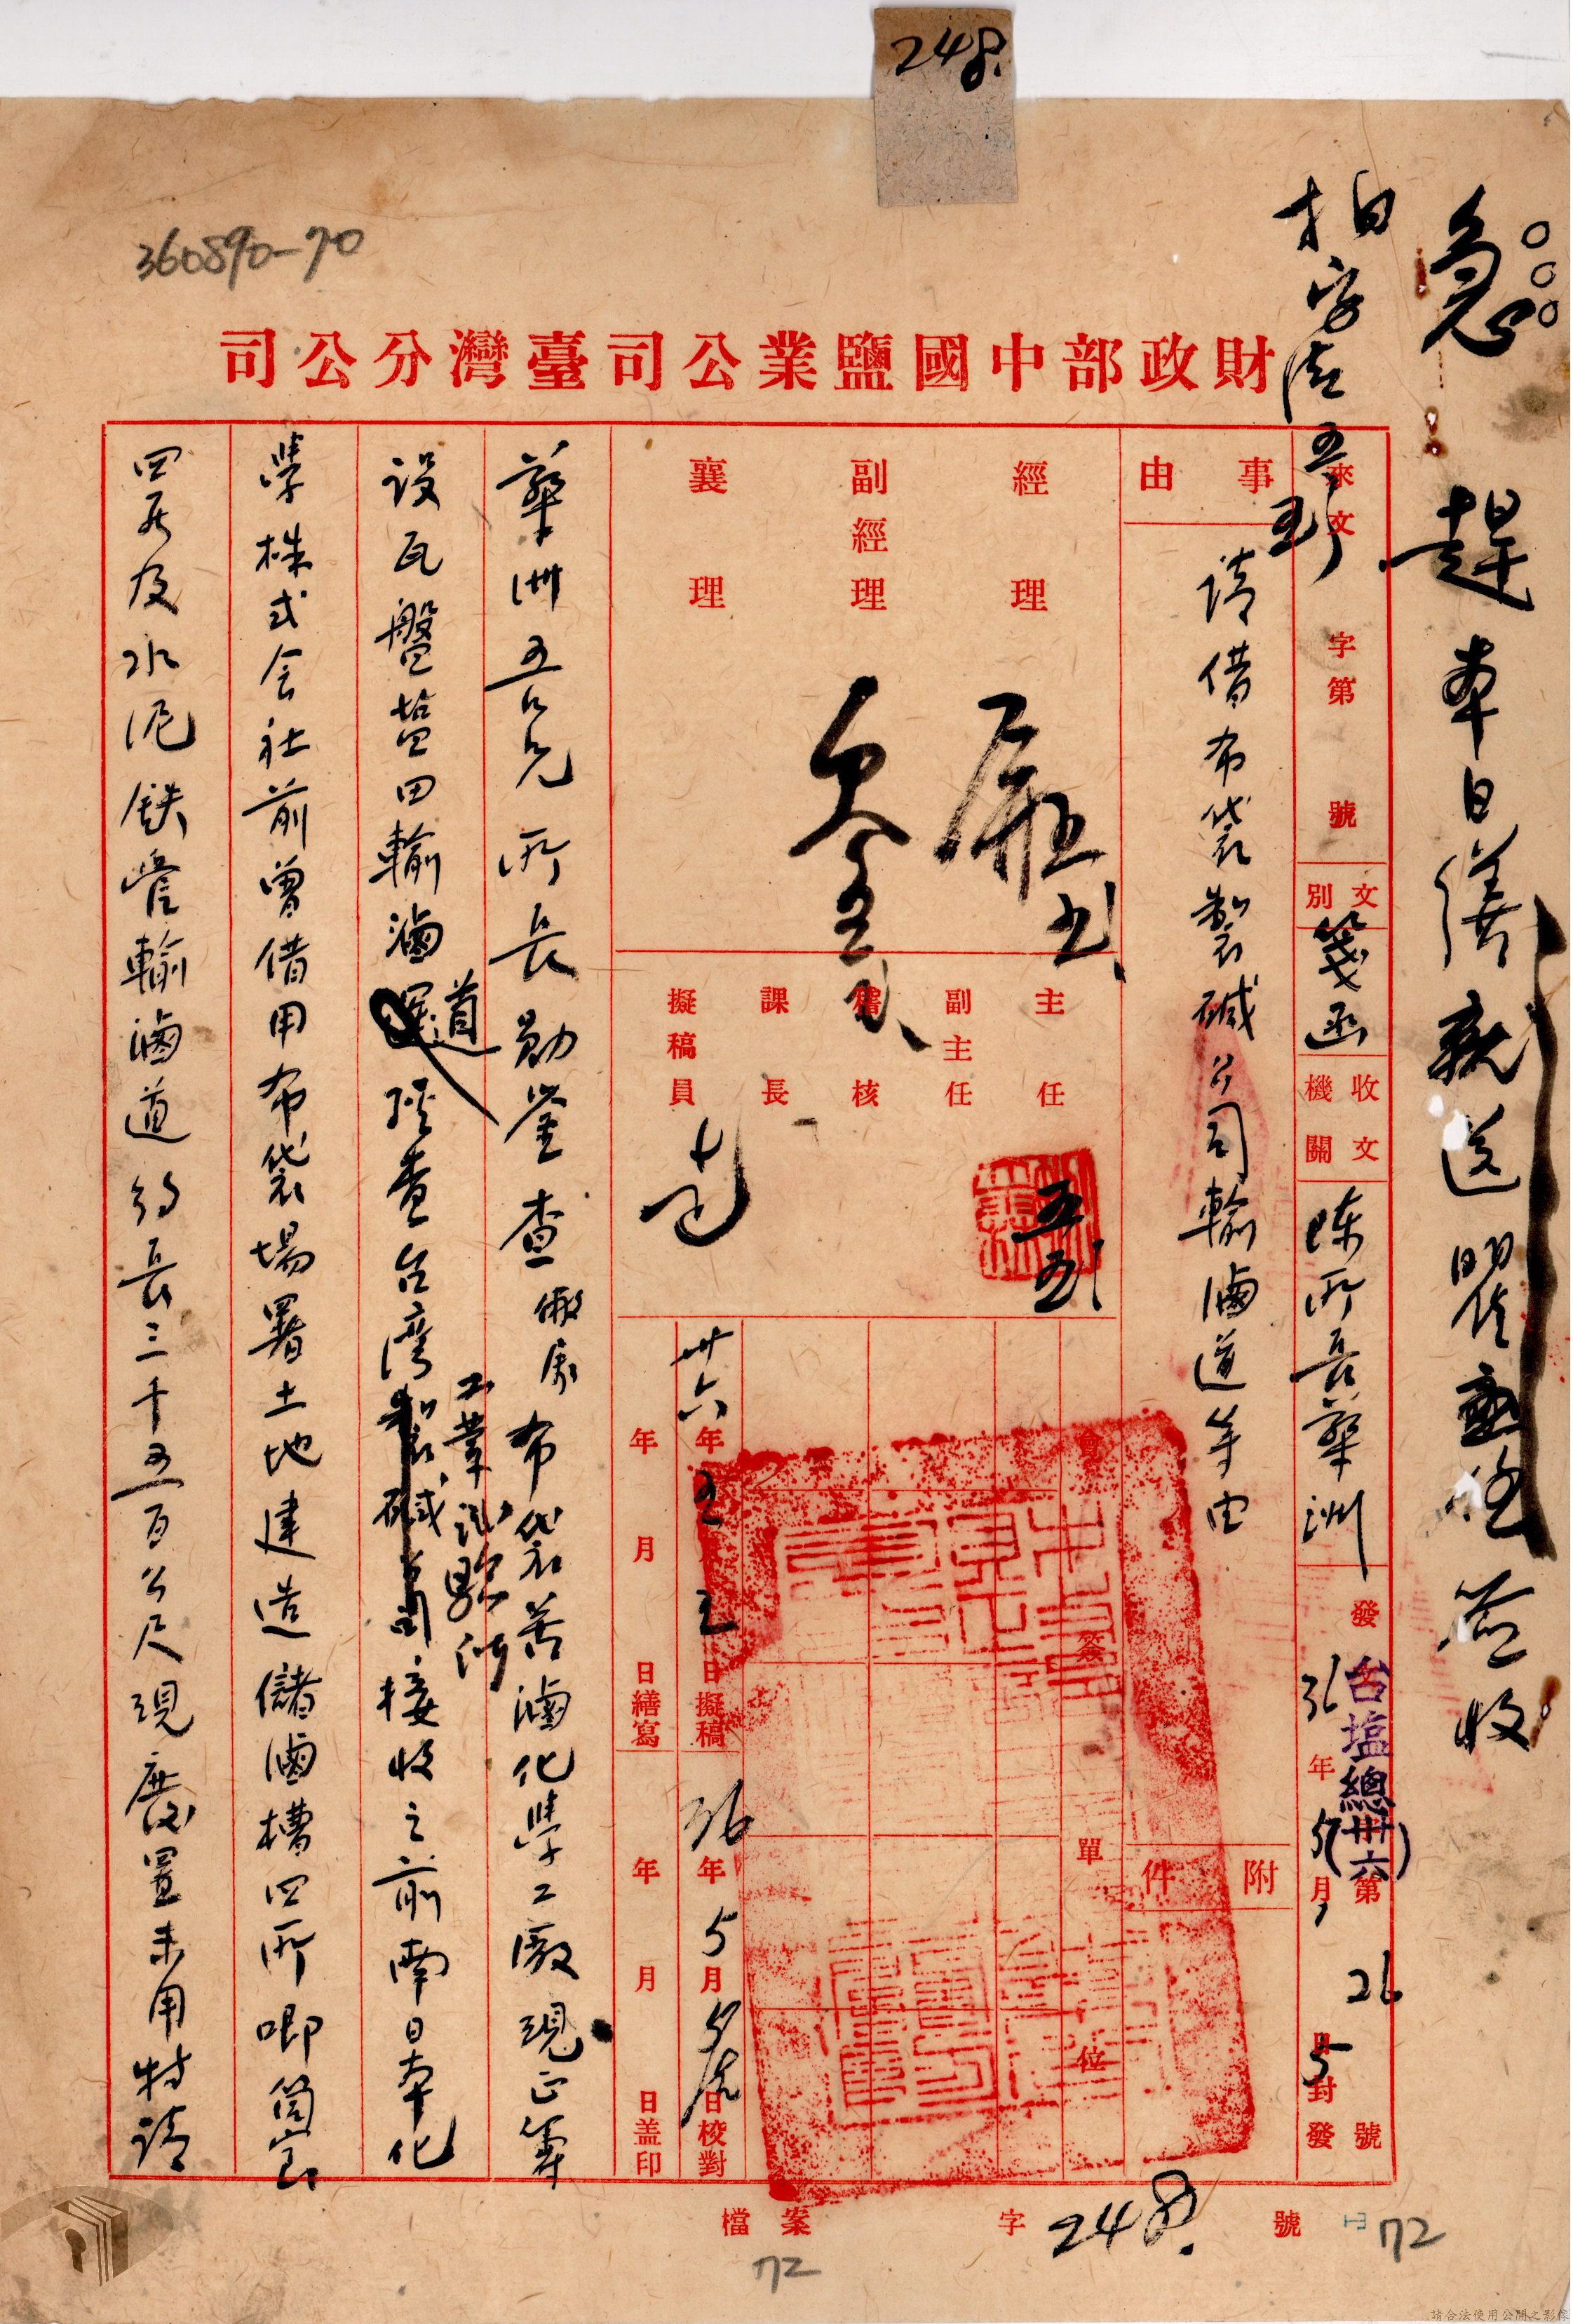 248.
360890-70
急
趕本日繕就送
收
財政部中國鹽業公司臺灣分公司
來文 字第 號
文別 箋函
收文機關 陳所長華洲
發 台塩總(卅六)第 26 號
36年5月5日封發
事由 請借布袋製碱公司輸滷道等由
附件
經理
副經理
襄理
主任
副主任
秘核
課長
擬稿員
會簽單位
卅六年五月五日擬稿
36年5月5日校對
年月日繕寫
年月日蓋印
華洲吾兄所長勛鑒查敝屬布袋苦滷化學工廠現正籌
設瓦盤塩田輸滷道經查台湾工業試驗所接收之前南日本化
學株式会社前曾借用布袋場署土地建造儲滷槽四所唧筒室
四所及水泥鉄管輸滷道約長三千五百公尺現廢置未用特請
檔案 字 248. 號
72
72
請合法使用公開之影像